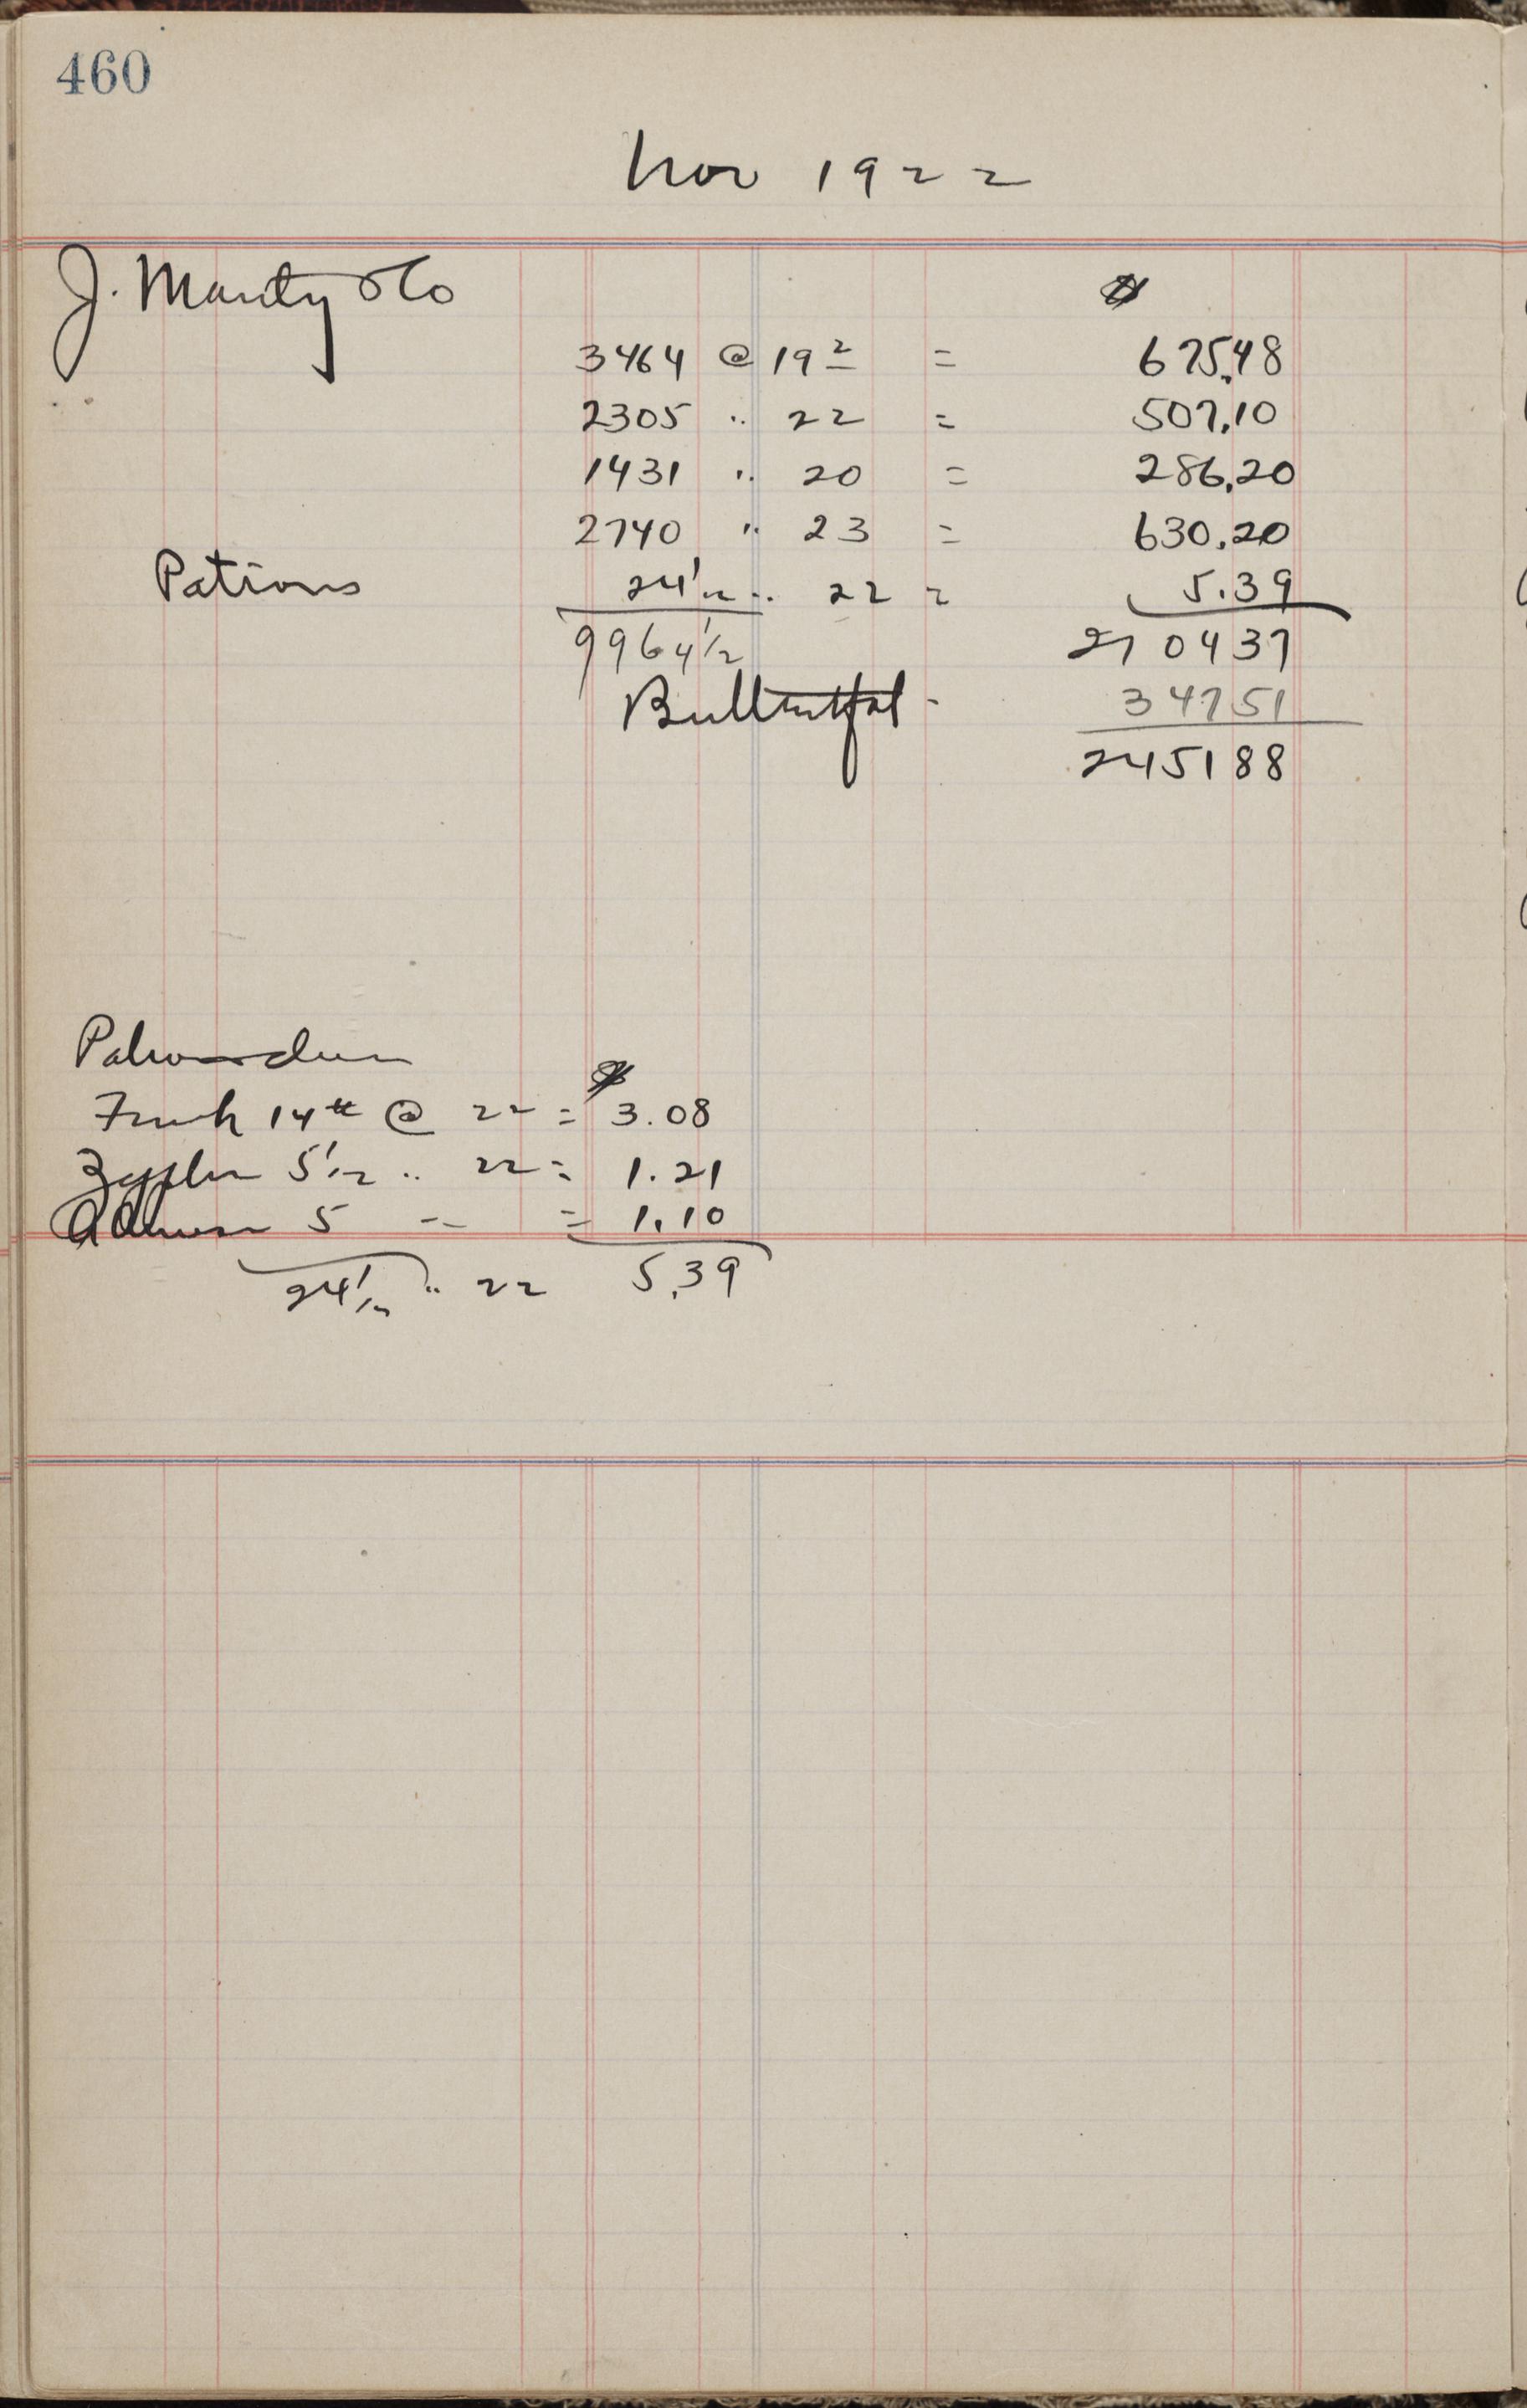 460
Nov 1922
J. Marty & Co
$
3464 @ 19½ = 675.48
2305 " 22 = 507.10
1431 " 20 = 286.20
2740 " 23 = 630.20
Patrons 24 1/2 " 22 = 5.39
9964 1/2 210437
Butterfat - 34751
245188
Patrons
$
14# @ 22 = 3.08
5 1/2 " 22 = 1.21
5 " = 1.10
24 1/2 " 22 5.39